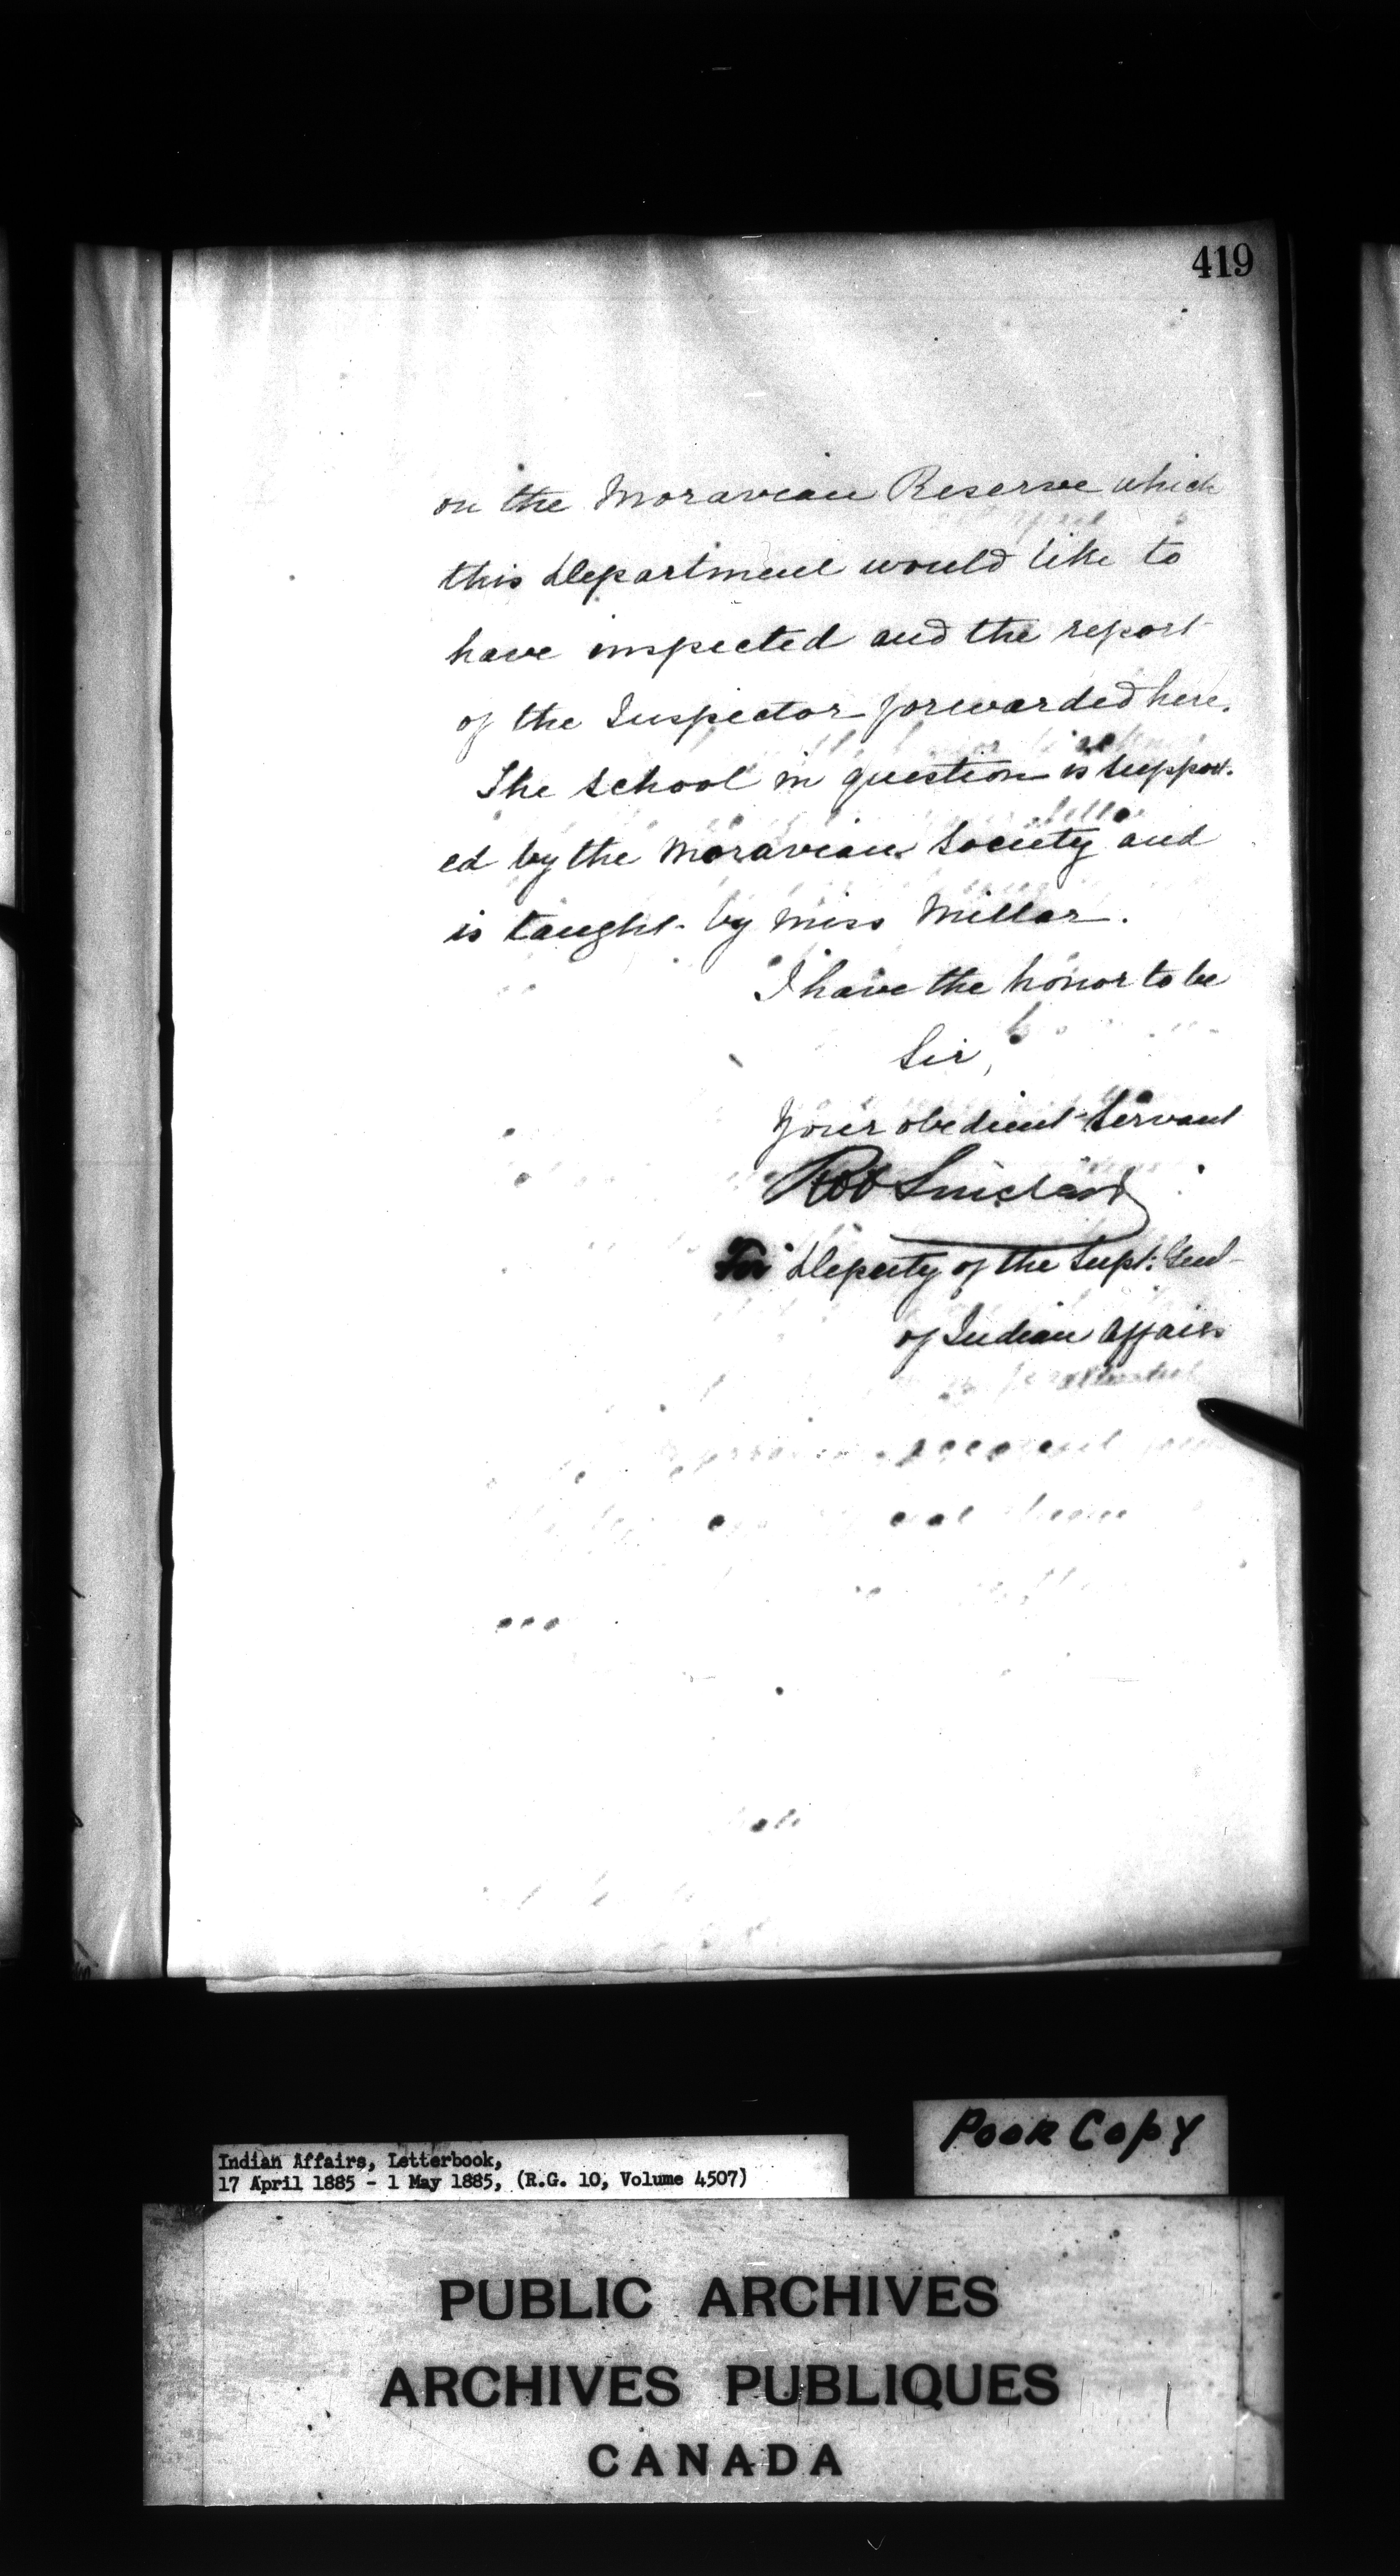 419
on the Moravian Reserve which
this Department would like to
have inspected and the report
of the Inspector forwarded here.
The School in question is support-
ed by the Moravian Society and
is taught by Miss Millar.
I have the honor to be
Sir,
Your obedient Servant
Rob Sinclair
For Deputy of the Supt: Genl
of Indian Affairs
Poor Copy
Indian Affairs, Letterbook,
17 April 1885 - 1 May 1885, (R.G. 10, Volume 4507)
PUBLIC ARCHIVES
ARCHIVES PUBLIQUES
CANADA